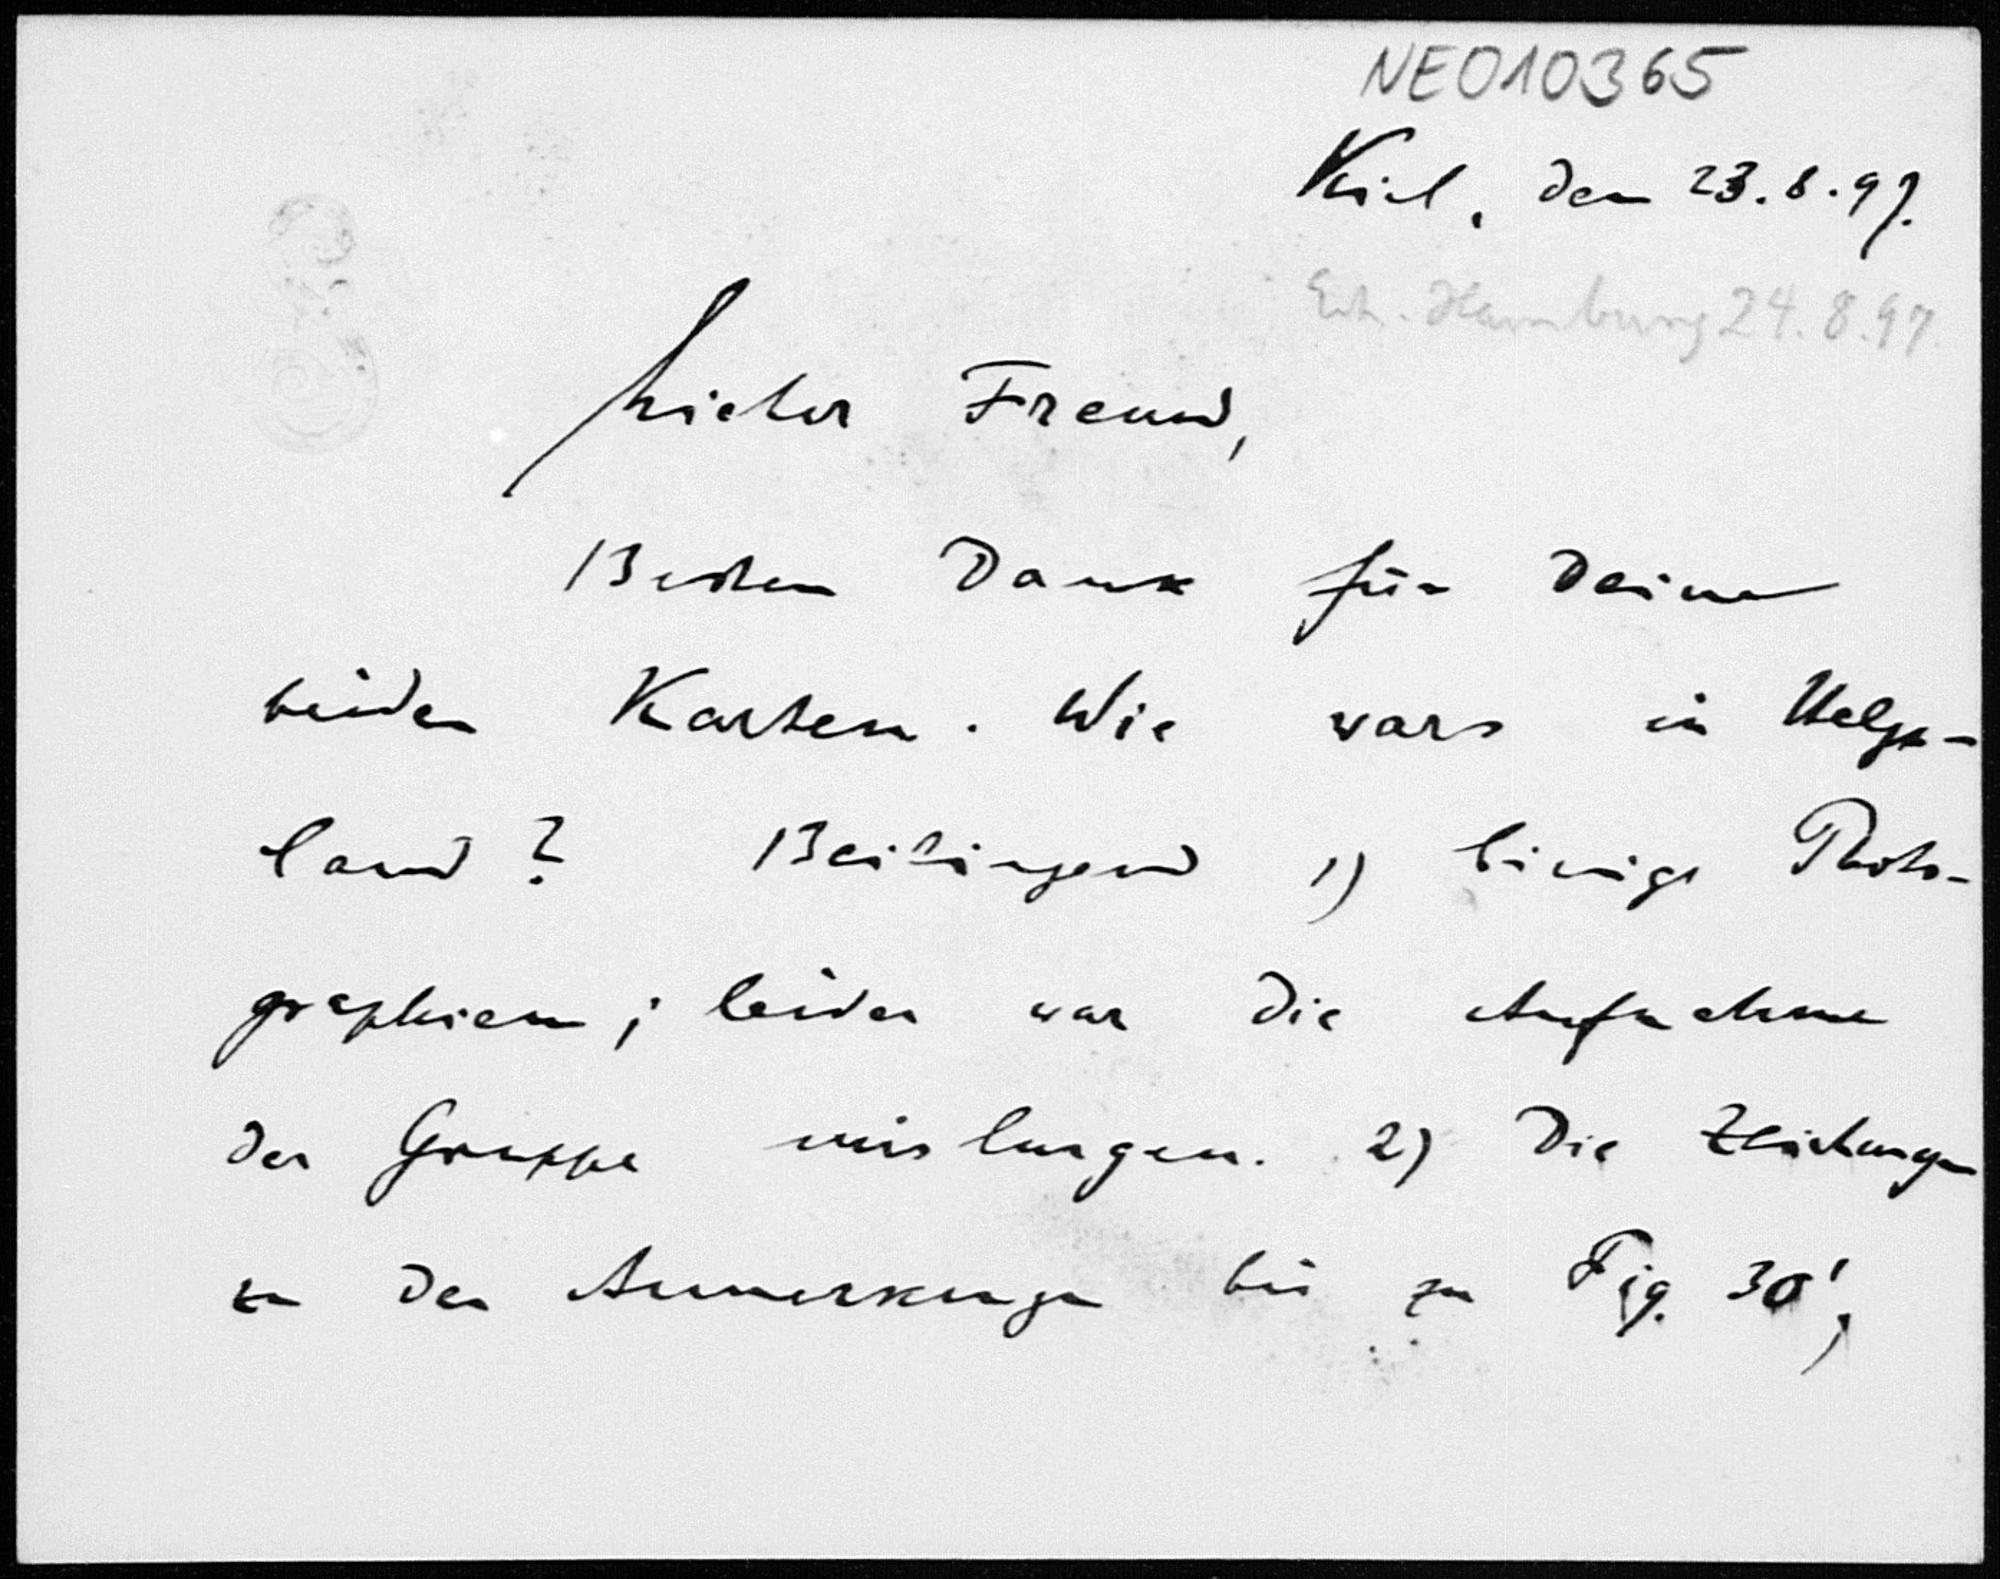 NE010365
Kiel, den 23.8.97.
Erh. Hamburg 24.8.97.
Lieber Freund,
Besten Dank für Deine
beiden Karten. Wie wars in Helgo-
land? Beiliegend 1) Einige Photo-
graphien; leider war die Aufnahme
der Gruppe mislungen. 2) Die Zeichungen
zu den Anmerkungen bis zu Fig. 30',